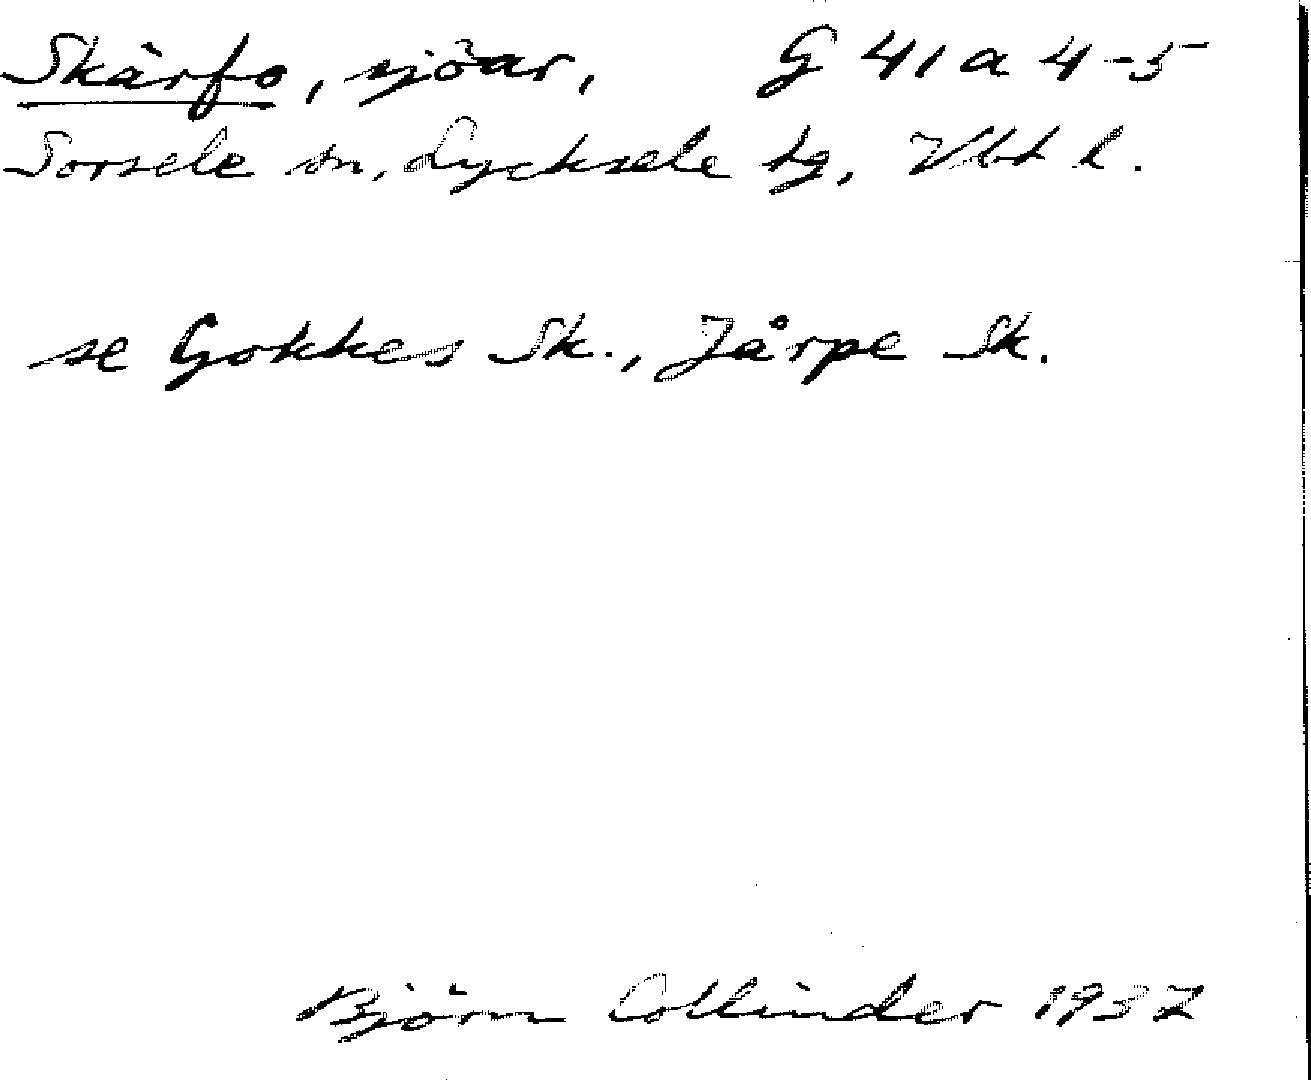 Skärfo, sjöar, G 41 a 4-5
Sorsele sn, Lycksele tg, Vbt l.
se Gokkes Sk., Järpe Sk.
Björn Collinder 1937